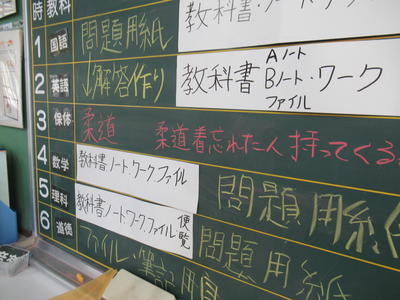 時 教科
1 国語 問題用紙 教科書・ノート・ワーク
2 英語 ↓解答作り 教科書 Aノート Bノート・ワーク ファイル
3 保体 柔道 柔道着忘れた人持ってくる
4 数学 教科書ノート・ワークファイル 問題用紙
5 理科 教科書ノートワークファイル 便覧 問題用紙
6 道徳 ファイル・筆記用具